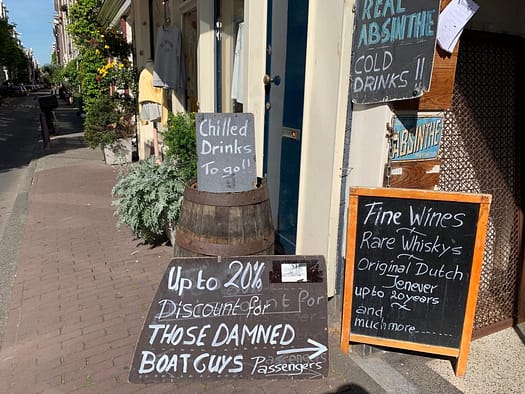 REAL
ABSINTHE
COLD
DRINKS !!
ABSINTHE
Chilled
Drinks
To go!!
Fine Wines
~
Rare Whisky's
~
Original Dutch
Jenever
up to 20 years
~
and
much more.......
Up to 20%
Discount for
THOSE DAMNED
BOAT GUYS Passengers